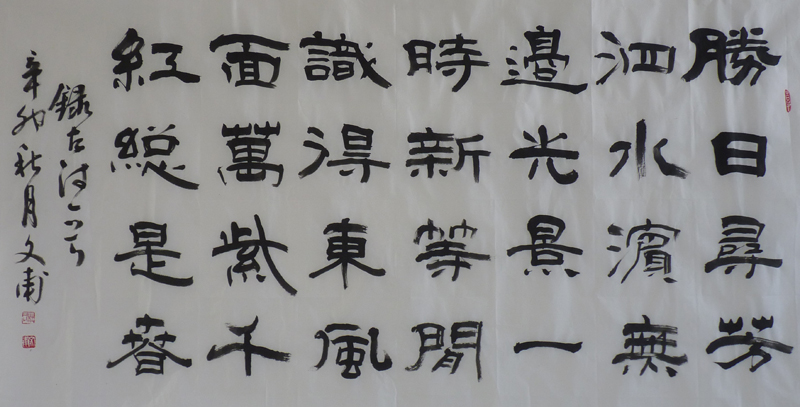 勝日尋芳
泗水濱無
邉光景一
時新等閒
識得東風
面萬紫千
紅総是春
錄古詩一首
辛卯秋月文甫